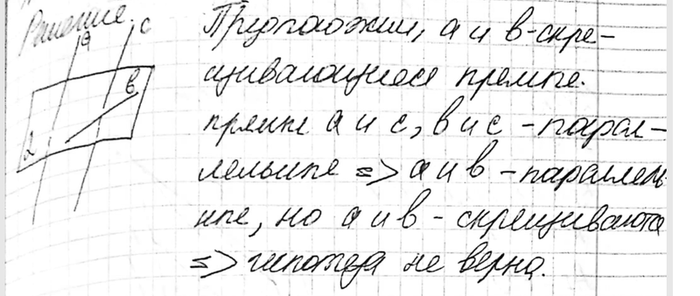 Решение
a c
в
α
Предположим, а и в-скре-
щивающиеся прямые.
прямые а и с, в и с - парал-
лельные => а и в - параллель
ные, но а и в - скрещиваются
=> гипотеза не верна.